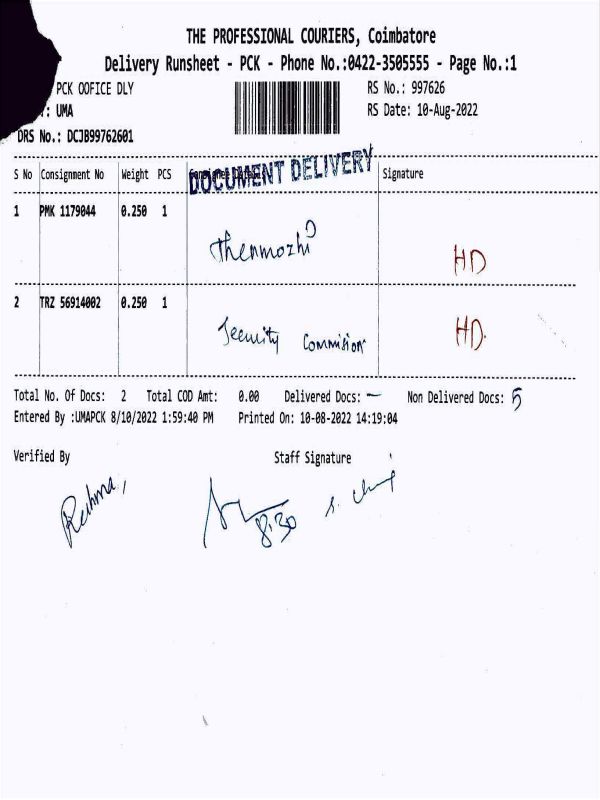 THE PROFESSIONAL COURIERS, Coimbatore
Delivery Runsheet - PCK - Phone No.:0422-3505555 - Page No.:1
PCK OOFICE DLY RS No.: 997626
: UMA RS Date: 10-Aug-2022
DRS No.: DCJB99762601
DOCUMENT DELIVERY
S No Consignment No Weight PCS Signature
1 PMK 1179044 0.250 1
Thenmozhi HD
2 TRZ 56914002 0.250 1
Security Commision HD.
Total No. Of Docs: 2 Total COD Amt: 0.00 Delivered Docs: — Non Delivered Docs: 5
Entered By :UMAPCK 8/10/2022 1:59:40 PM Printed On: 10-08-2022 14:19:04
Verified By Staff Signature
8:30